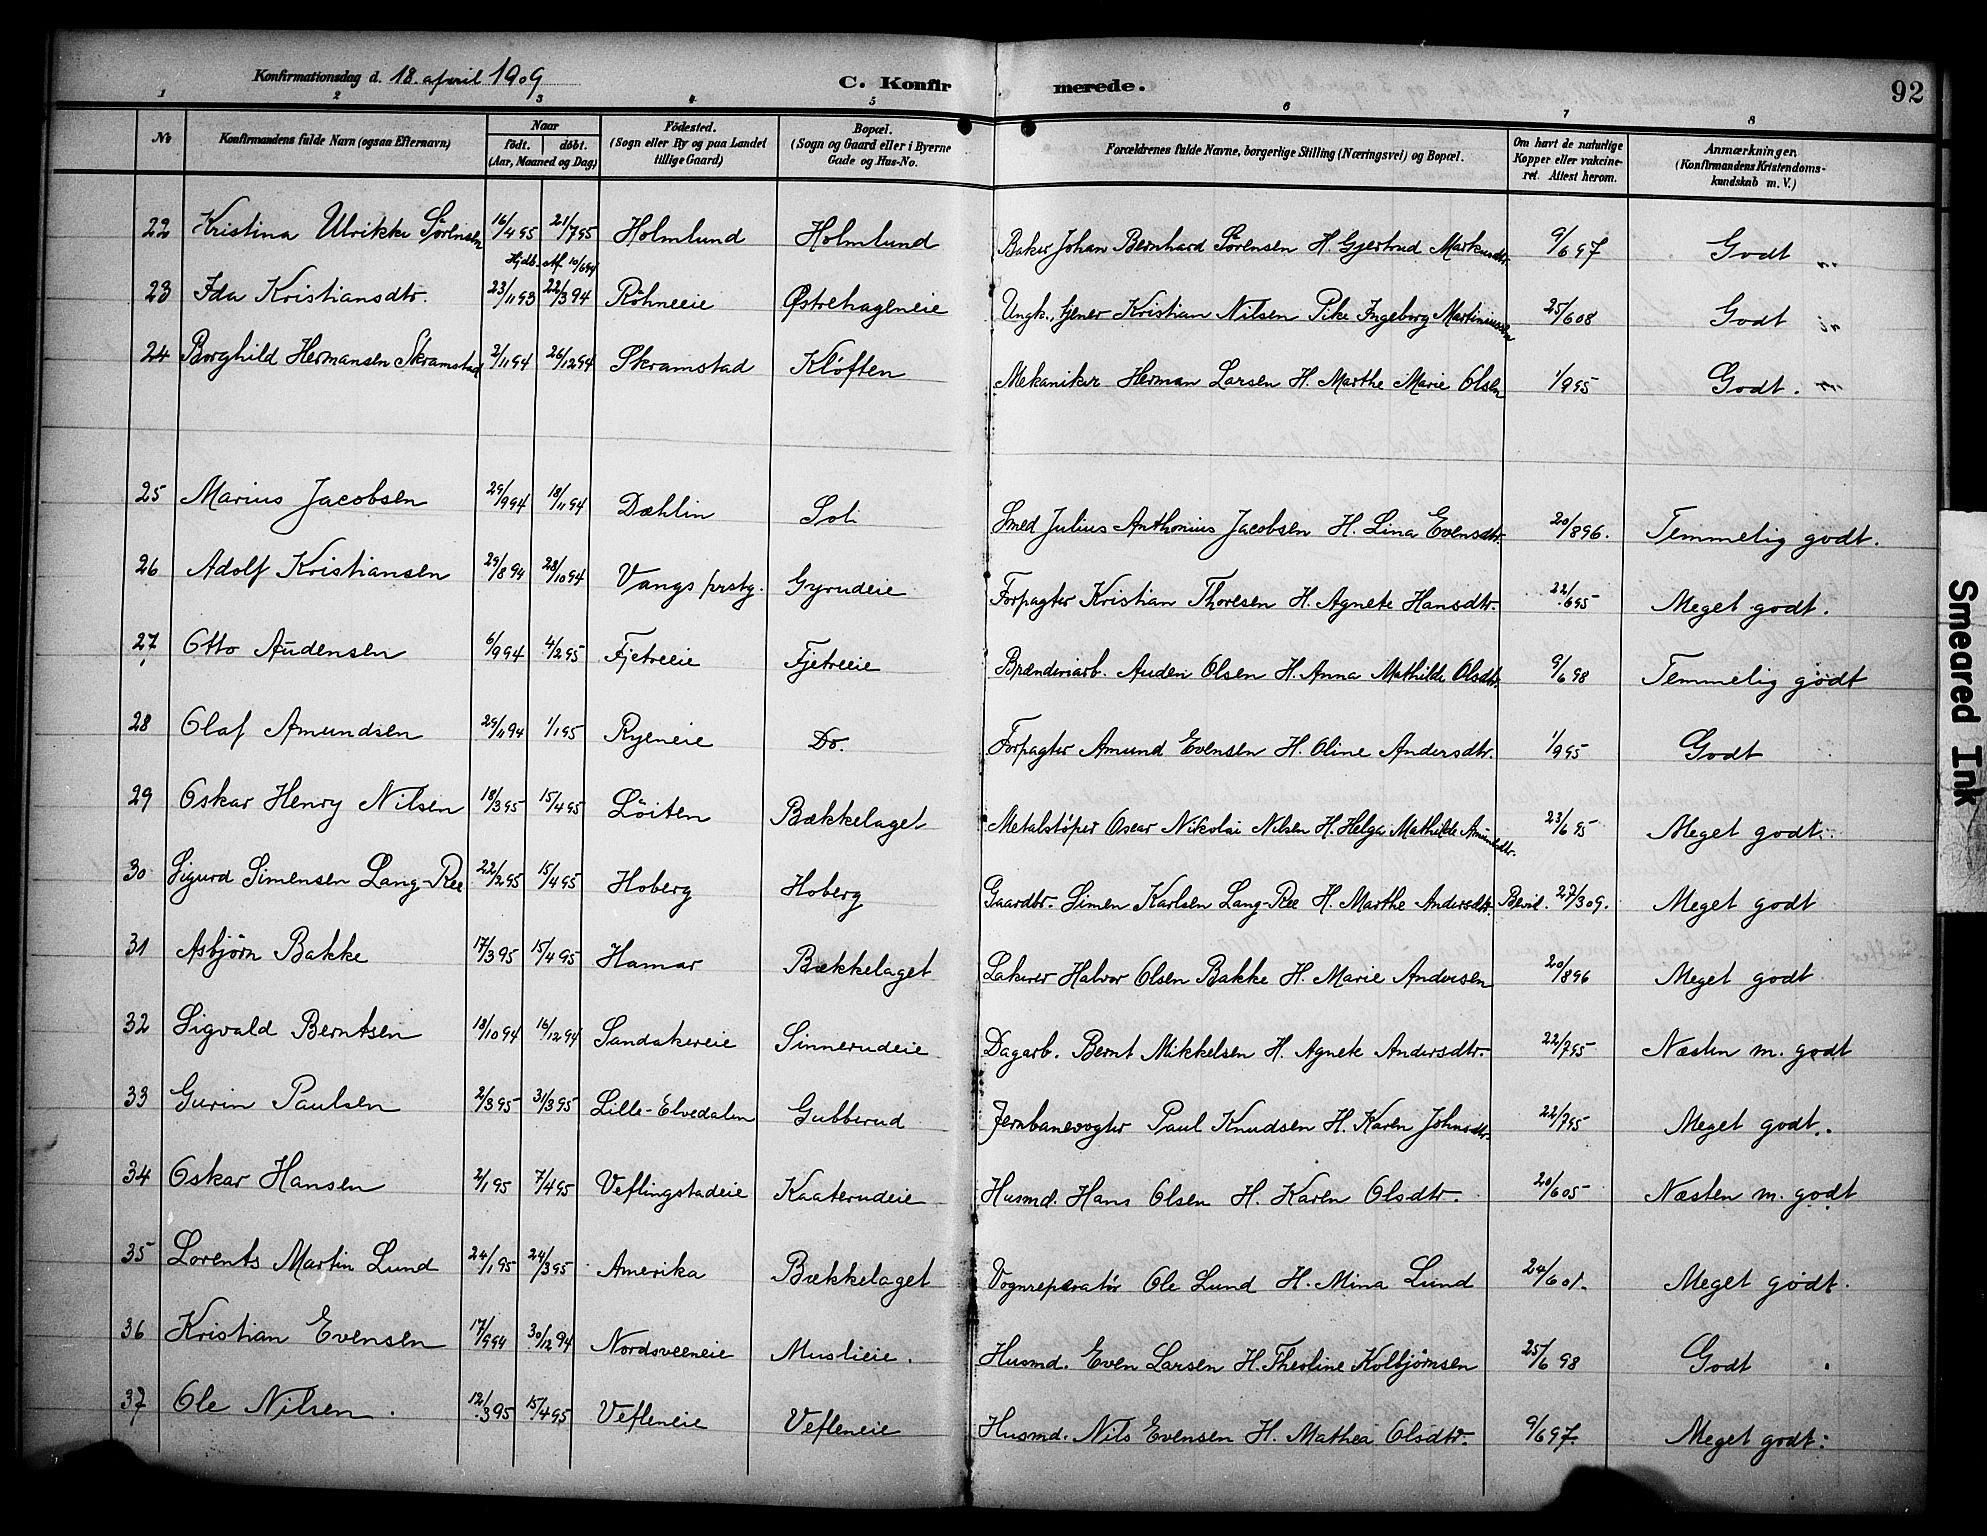 Konfirmationsdag d. 18. april 1909 C. Konfirmerede. 92
1 2 3 4 5 6 7 8
No Konfirmandens fulde Navn (ogsaa Efternavn) Naar født. døbt. (Aar, Maaned og Dag) Fødested. (Sogn eller By og paa Landet tillige Gaard) Bopæl. (Sogn og Gaard eller i Byerne Gade og Hus-No. Forældrenes fulde Navne, borgerlige Stilling (Næringsvei) og Bopæl. Om havt de naturlige Kopper eller vakcineret. Attest herom. Anmærkninger. (Konfirmandens Kristendomskundskab m. V.)
22 Kristina Ulrikke Sørensen 16/4 95 21/7 95 Holmlund Holmlund Baker Johan Bernhard Sørensen H. Gjertrud Markusdtr. 9/6 97 Godt
Hjdb. Af 10/6 94
23 Ida Kristiansdtr. 23/11 93 22/3 94 Röhneeie Østrehageneie Ungk., tjener Kristian Nilsen Pike Ingeborg Martiniussen 25/6 08 Godt
24 Borghild Hermansen Skramstad 2/11 94 26/12 94 Skramstad Kløften Mekaniker Herman Larsen H. Marthe Marie Olsen 1/9 95 Godt.
25 Marius Jacobsen 29/9 94 18/11 94 Dæhlin Soli Smed Julius Anthonius Jacobsen H. Lina Evensdtr. 20/8 96. Temmelig godt.
26 Adolf Kristiansen 29/8 94 28/10 94 Vangs prstg. Gyrudeie Forpagter Kristian Thoresen H. Agnete Hansdtr. 22/6 95 Meget godt.
27 Otto Audensen 6/9 94 4/2 95 Fjetreeie Fjetreeie Brænderiarb. Auden Olsen H. Anna Mathilde Olsdtr. 9/6 98 Temmelig godt
28 Olaf Amundsen 29/11 94 1/1 95 Ryeneie Do. Forpagter Amund Evensen H. Oline Andersdtr. 1/9 95 Godt
29 Oskar Henry Nilsen 18/3 95 15/4 95 Löiten Bækkelaget Metalstøper Oscar Nikolai Nilsen H. Helga Mathilde Amundsdtr. 23/6 95 Meget godt.
30 Sigurd Simensen Lang-Ree 22/2 95 15/4 95 Hoberg Hoberg Gaardbr. Simen Karlsen Lang-Ree H. Marthe Andersdtr. Bevil. 27/3 09. Meget godt
31 Asbjørn Bakke 17/3 95 15/4 95 Hamar Bækkelaget Lakerer Halvor Olsen Bakke H. Marie Andersen 20/8 96 Meget godt
32 Sigvald Berntsen 18/10 94 16/12 94 Sandakereie Sinnerudeie Dagarb. Bernt Mikkelsen H. Agnete Andersdtr. 22/7 95 Næsten m. godt
33 Gurin Paulsen 2/3 95 31/3 95 Lille-Elvedalen Gubberud Jernbanevogter Paul Knudsen H. Karen Johnsdtr. 22/7 95 Meget godt.
34 Oskar Hansen 2/1 95 7/4 95 Veflingstadeie Kaaterudeie Husmd. Hans Olsen H. Karen Olsdtr. 20/6 05 Næsten m. godt
35 Lorents Martin Lund 24/1 95 24/3 95 Amerika Bækkelaget Vognreperatør Ole Lund H. Mina Lund 24/6 01. Meget godt.
36 Kristian Evensen 17/9 94 30/12 94 Nordsveeneie Muslieie. Husmd. Even Larsen H. Theoline Kolbjørnsen 25/6 98 Godt
37 Ole Nilsen. 12/3 95 15/4 95 Vefleneie Vefleneie Husmd. Nils Evensen H. Mathea Olsdtr. 9/6 97. Meget godt.
Smeared Ink